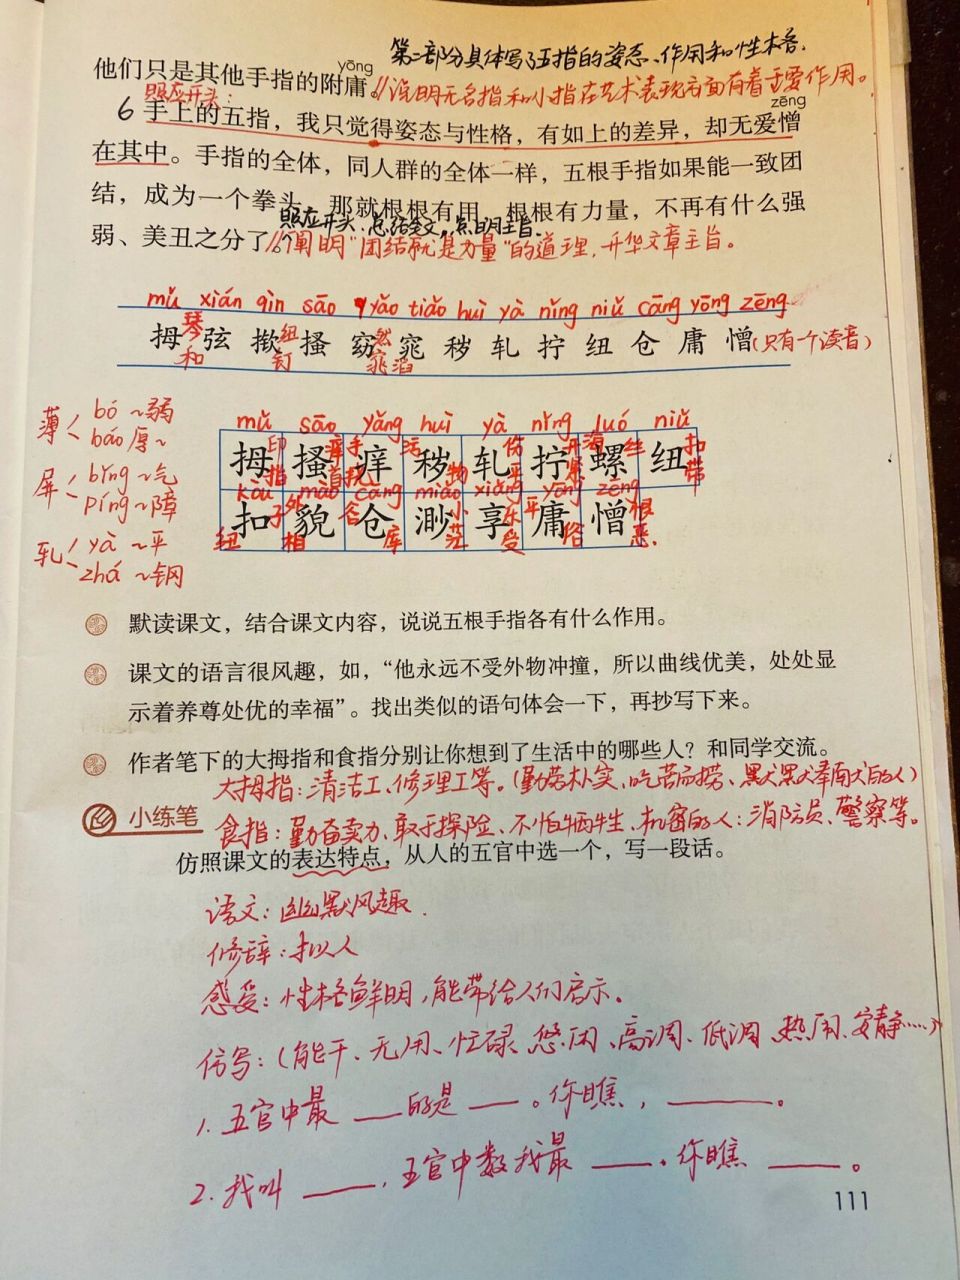 第二部分具体写了五指的姿态、作用和性格.
yōng
他们只是其他手指的附庸。//说明无名指和小指在艺术表现方面有着重要作用。
照应开头:
zēng
6 手上的五指，我只觉得姿态与性格，有如上的差异，却无爱憎
在其中。手指的全体，同人群的全体一样，五根手指如果能一致团
结，成为一个拳头，那就根根有用，根根有力量，不再有什么强
照应开头、总结全文,点明主旨.
弱、美丑之分了。//阐明"团结就是力量"的道理,升华文章主旨。
mǔ xián qìn sāo yǎo tiǎo huì yà nǐng niǔ cāng yōng zēng
拇 弦 揿 搔 窈 窕 秽 轧 拧 纽 仓 庸 憎(只有一个读音)
琴 纽 然
和 钉 窕 滔
薄 bó ~弱
báo 厚~
屏 bǐng ~气
píng ~障
轧 yà ~平
zhá ~钢
mǔ sāo yǎng huì yà nǐng luó niǔ
拇 搔 痒 秽 轧 拧 螺 纽
kòu mào cāng miǎo xiǎng yōng zēng
扣 貌 仓 渺 享 庸 憎
默读课文，结合课文内容，说说五根手指各有什么作用。
课文的语言很风趣，如，“他永远不受外物冲撞，所以曲线优美，处处显
示着养尊处优的幸福”。找出类似的语句体会一下，再抄写下来。
作者笔下的大拇指和食指分别让你想到了生活中的哪些人？和同学交流。
大拇指:清洁工、修理工等。(勤劳朴实、吃苦耐劳、默默奉献的人)
小练笔
食指:勤奋卖力、敢于探险、不怕牺牲、机密的人:消防员、警察等。
仿照课文的表达特点，从人的五官中选一个，写一段话。
语文:幽默风趣.
修辞:拟人
感受:性格鲜明,能带给人们启示。
仿写:(能干、无用、忙碌、悠闲、高调、低调、热闹、安静……)
1. 五官中最 ___的是 ___。你瞧, ______。
2. 我叫 ____,五官中数我最 ____.你瞧 ____。
111